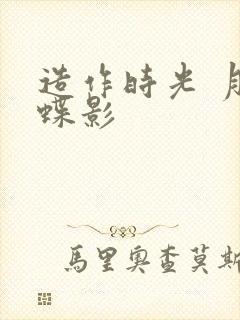 造作時光 月
蝶影
馬里奧查莫斯